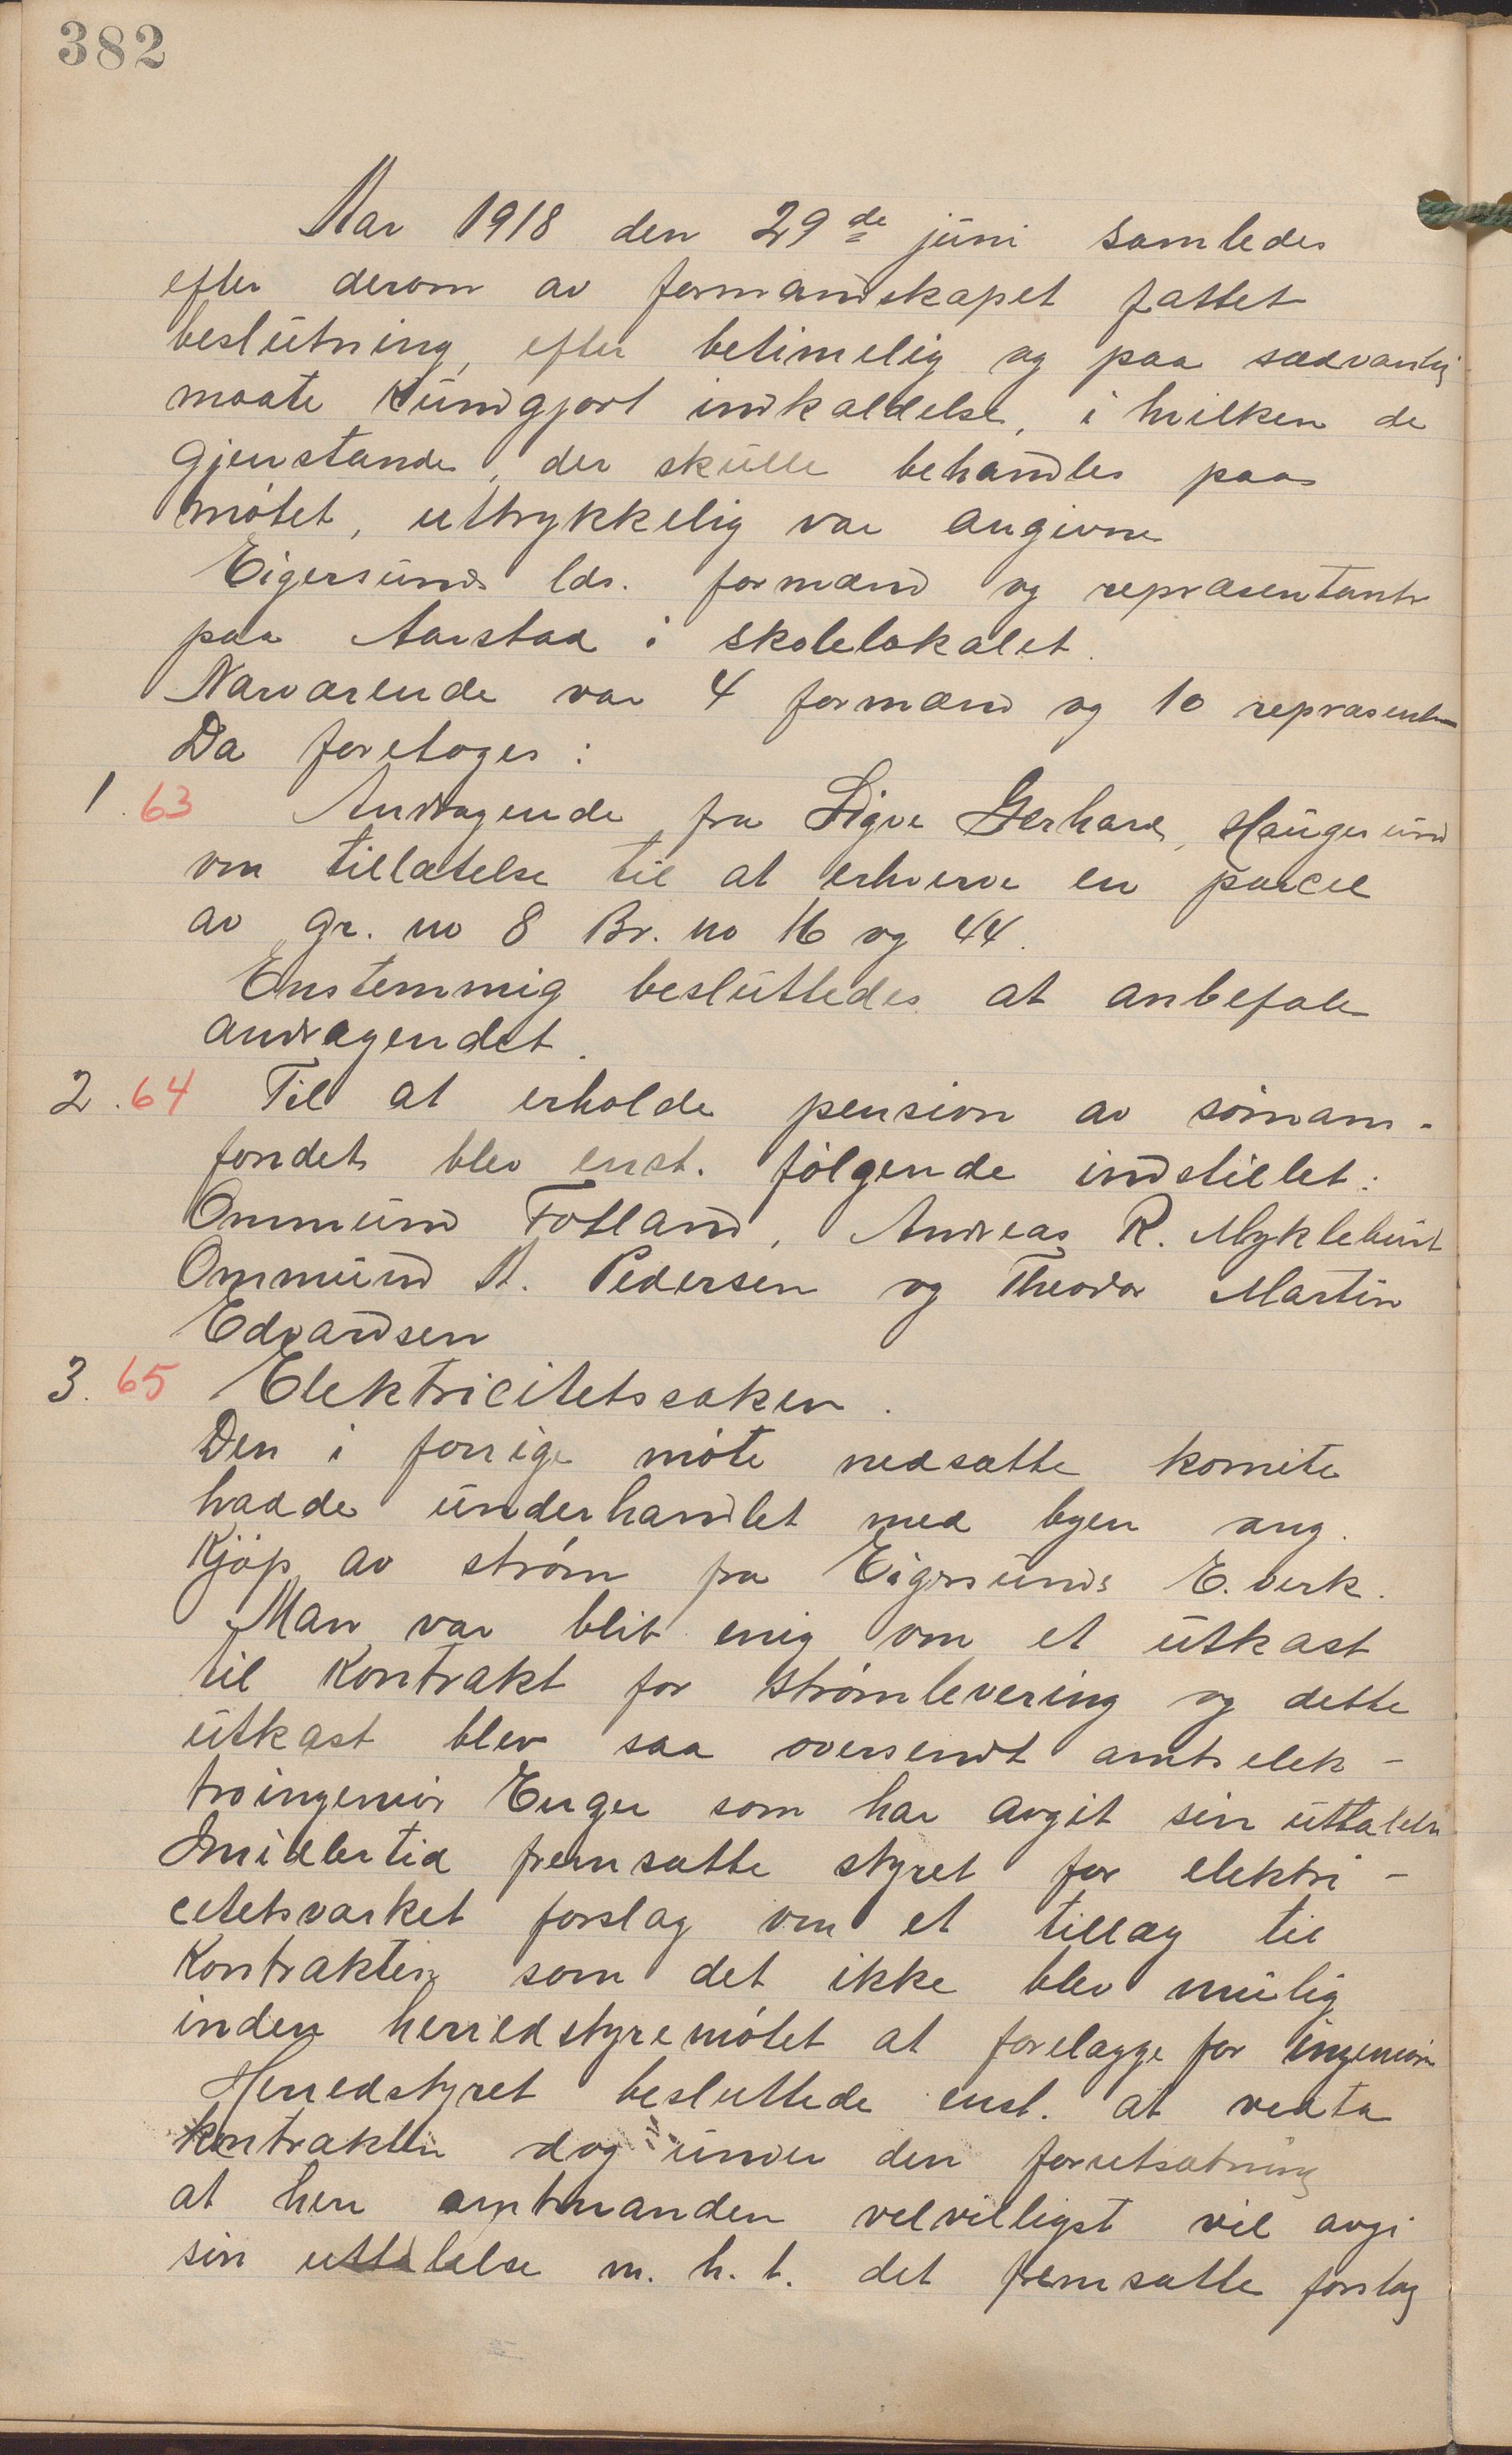 382
Aar 1918 den 29de juni samledes
efter derom av formandskapet fattet
beslutning, efter betimelig og paa sædvanlig
maate kundgjort indkaldelse, i hvilken de
gjenstande, der skulle behandles paa
møtet, uttrykkelig var angivne
Eigersunds lds. formænd og repræsentanter
paa Aarstad i skolelokalet.
Nærværende var 4 formænd og 10 repræsentanter
Da foretoges:
1. 63 Andragende fra Sigve Gerhard, Haugesund
om tillatelse til at erhverve en parcel
av gr. no 8 Br. no 16 og 44.
Enstemmig besluttedes at anbefale
andragendet.
2. 64 Til at erholde pension av sømans-
fondet blev enst. følgende indstillet:
Ommund Fotland, Andreas R. Myklebust
Ommund A. Pedersen og Theodor Martin
Edvardsen
3. 65 Elektricitetssaken.
Den i forrige møte nedsatte komite
hadde underhandlet med byen ang.
Kjøp av strøm fra Eigersunds E.verk.
Man var blit enig om et utkast
til Kontrakt for strømlevering og dette
utkast blev saa oversendt amtselek-
troingeniør Enger som har avgit sin uttalelse
Imidlertid fremsatte styret for elektri-
citetsværket forslag om et tillæg til
Kontrakten som det ikke blev mulig
inden herredstyremøtet at forelægge for ingeniøren
Herredstyret besluttede enst. at vedta
kontrakten dog under den forutsætning
at herr amtmanden velvilligst vil avgi
sin uttalelse m. h. t. det fremsatte forslag